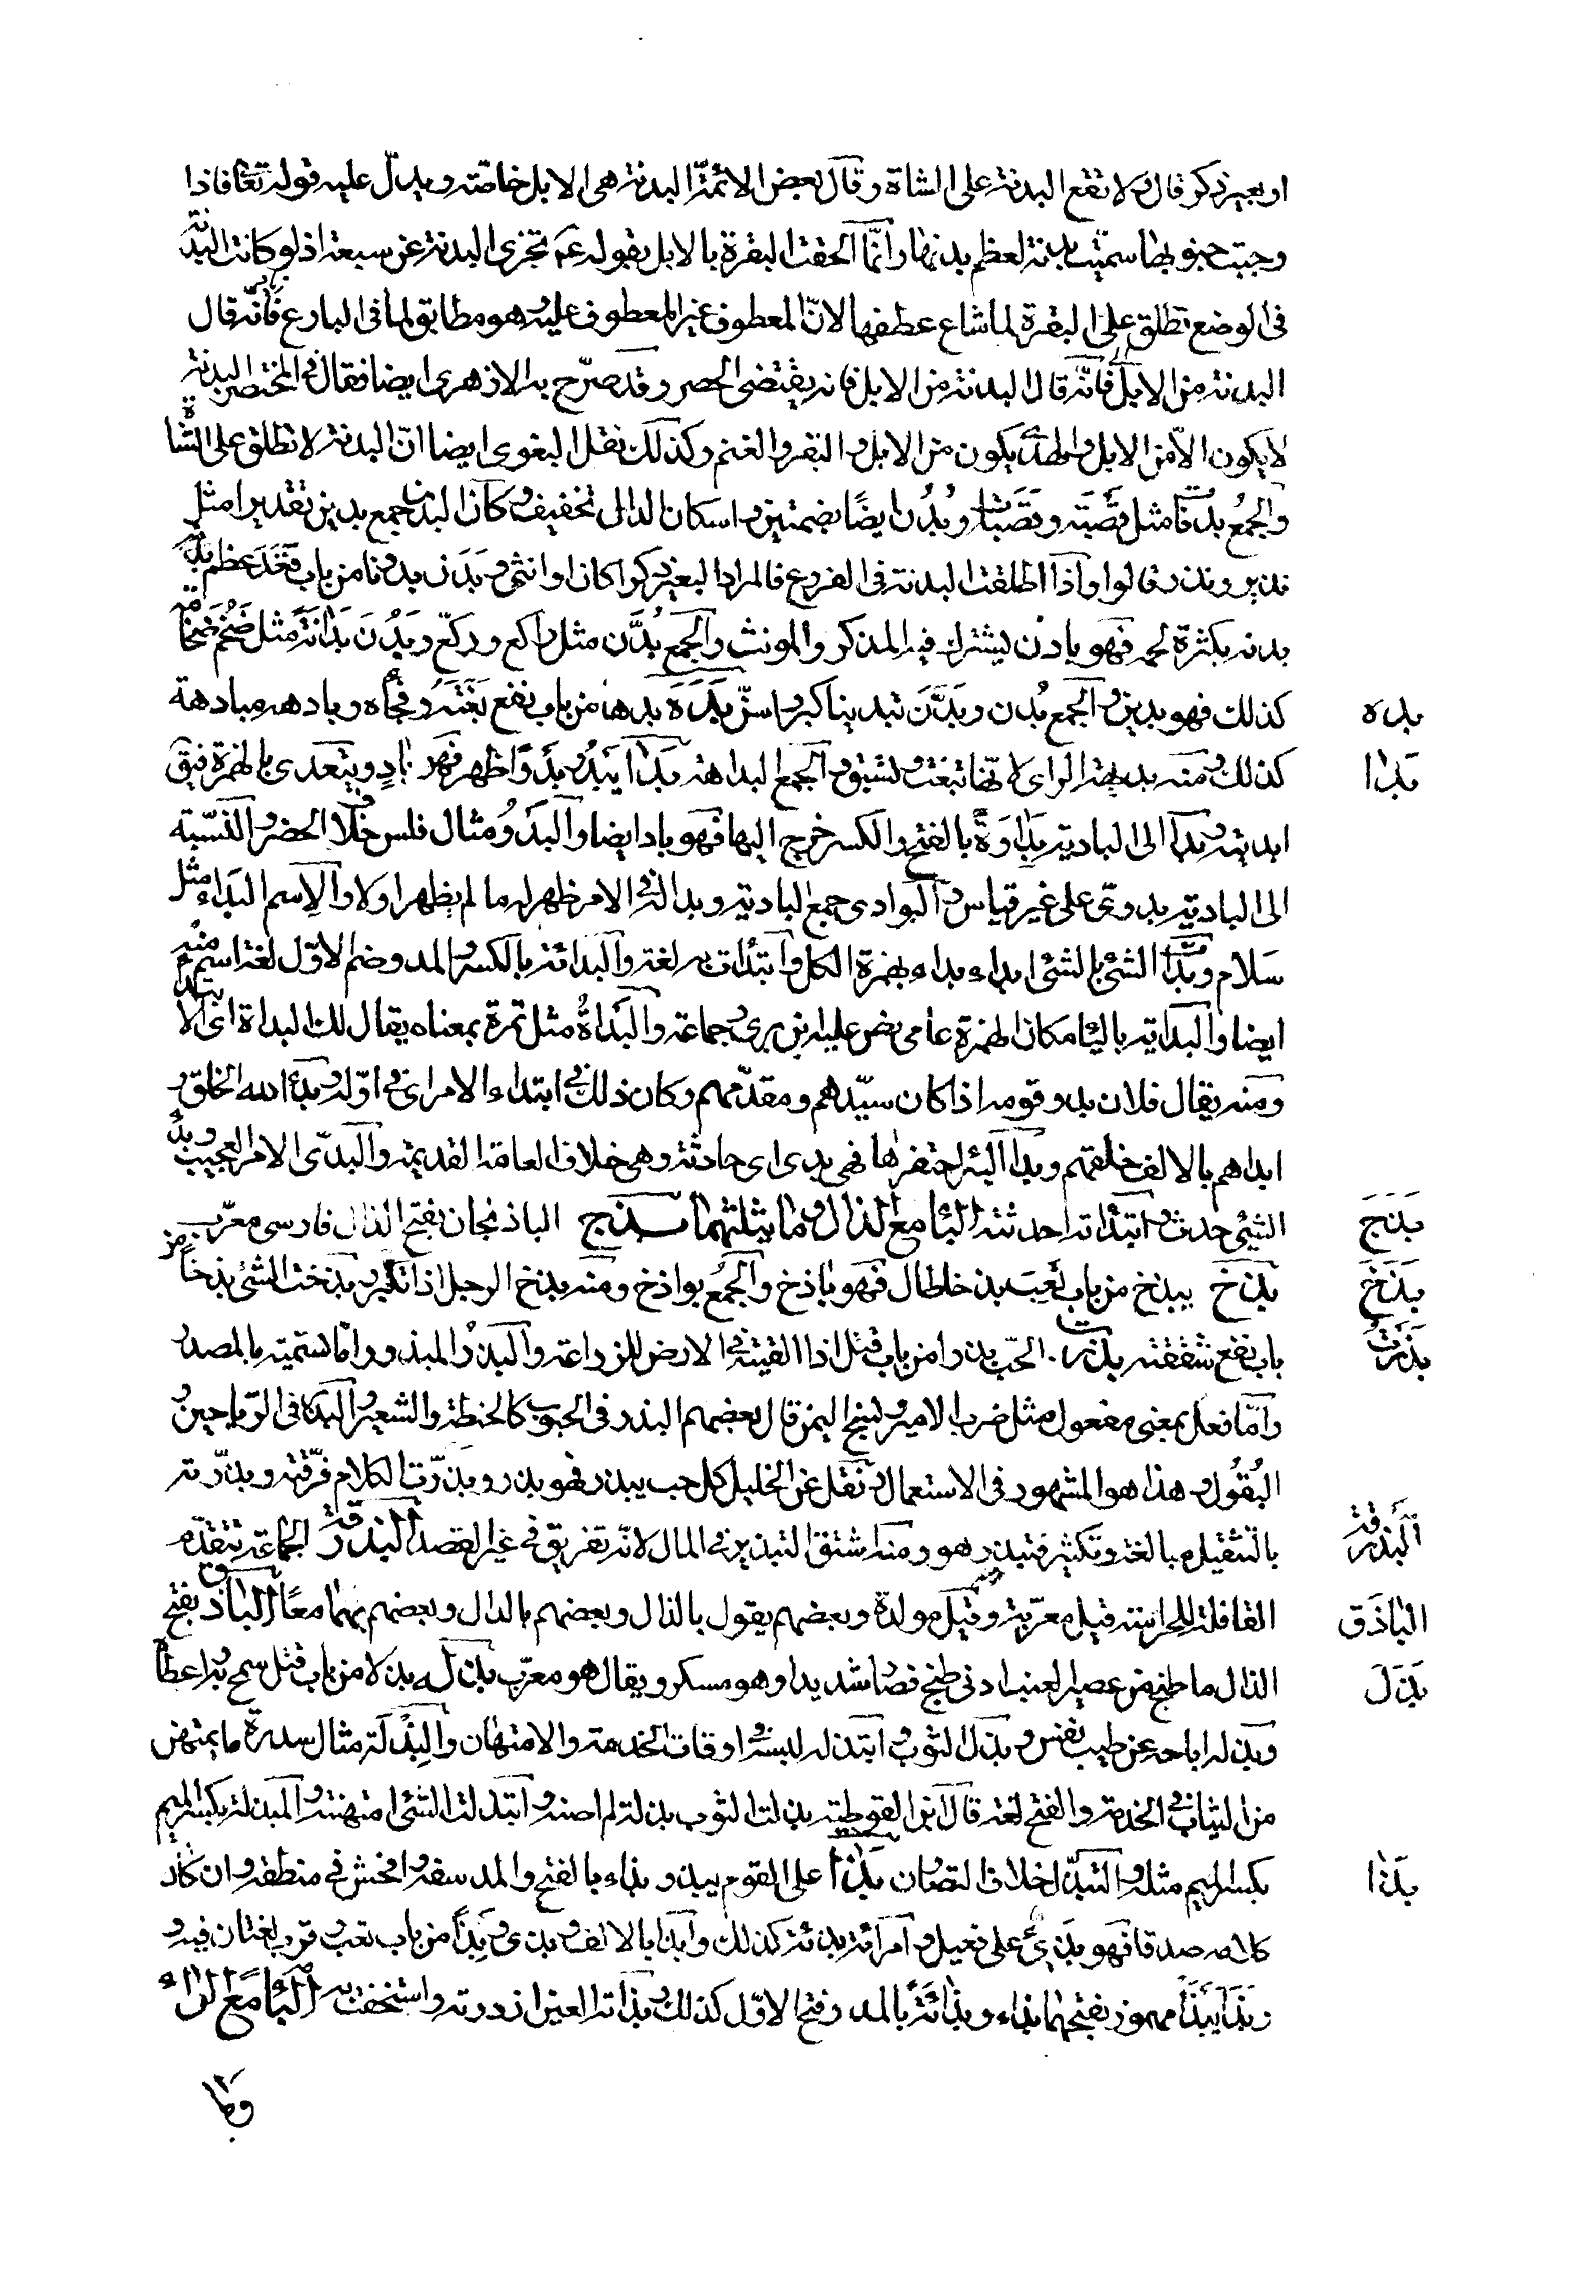 او بعير ذكر قال ولا تقع البدنة على الشاة وقال بعض الائمّة البدنة هي الابل خاصّة ويدلّ عليه قوله تعا فاذا
وجبت جنوبها سمّيت بدنة لعظم بدنها وانّما الحقت البقرة بالابل بقوله عم تجزى البدنة عن سبعة اذ لو كانت البدنة
فى الوضع تطلق على البقرة لما شاع عطفها لانّ المعطوف غير المعطوف عليه وهو مطابق لما فى البارع فانّه قال
البدنة من الابل فانّه قال البدنة من الابل فانه يقتضى الحصر وقد صرّح به الازهرى ايضا فقال فى المختصر البدنة
لا يكون الاّ من الابل والهدى يكون من الابل والبقر والغنم وكذلك نقل البغوى ايضا انّ البدنة لا تطلق على الشاة
والجمع بدنات مثل قصَبَة وقصَبَات وبُدُن ايضًا بضمتين واسكان الدال تخفيف وكان البدن جمع بدين تقديرا مثل
نذير ونذر قالوا واذا اطلقت البدنة فى الفروع فالمراد البعير ذكرا كان او انثى وبَدَن بدونا من باب قعَدَ عظم
بدنه بكثرة لحمه فهو بادن يشترك فيه المذكر والمونث والجمع بُدَّن مثل راكع وركّع وبَدُنَ بَدَانَةً مثل ضَخُم ضخامة
كذلك فهو بدين والجمع بُدن وبَدَّنَ تبدينا كبر واسنّ بَدَهَهُ بدها من باب نفع بَغَتَهُ وفجأه وبادهه مبادهة
بده
كذلك ومنه بديهة الراى لانّها تبغت وتسبق والجمع البدائه بَدَا يَبْدُو بُدُوًّا ظهر فهو بادٍ ويتعدى بالهمزة فيق
بَدَا
ابديته وبدا الى البادية بَدَاوَةً بالفتح والكسر خرج اليها فهو باد ايضا والبَدْوُ مثال فلس خلاف الحضر والنّسبة
الى البادية بدوىّ على غير قياس والبوادى جمع البادية وبدا له فى الامر ظهر له ما لم يظهر اولا والاسم البَدَاء مثل
سَلام وبَدَأت الشئ بالشئ ابداء بداء بهمزة الكل وابتدأت به لغة والبدائة بالكسر والمد وضم الاوّل لغة اسم منه
ايضا والبداية باليا مكان الهمزة عامى نص عليه ابن برى وجماعة والبَدْأَةُ مثل تمرة بمعناه يقال لك البداة اى الابتدا
ومنه يقال فلان بدو قومه اذا كان سيّدهم ومقدّمهم وكان ذلك فى ابتداء الامر اى فى اوّله وبدأ الله الخلق و
ابداهم بالالف خلقهم وبدا البئر احتفرها فهى بدى اى حادثة وهى خلاف العامة القديمة والبدّى الامر العجيب وبدأ
الشيئ حدث وابتدأته احدثته البا مع الذال وما يثلثهما بذنج الباذنجان بفتح الذال فارسى معرّب
بَذَنجَ
بَذَخَ يبذخ من باب تَعِبَ بذخا طال فهو باذخ والجَمْع بواذخ ومنه بذخ الرجل اذا تكبر وبذخت الشئ بذخًا من
بَذَخَ
باب نفع شققته بذرت الحبّ بذرا من باب قتل اذا القيته فى الارض للزراعة والبذر المبذور وامّا تسمية بالمصدر
بَذَرْتُ
وامّا فعل بمعنى مفعول مثل ضرب الامير ونسج اليمن قال بعضهم البذر فى الحبوب كالحنطة والشعير والبذر فى الرّياحين و
البُقُول وهذا هو المشهور فى الاستعمال ونقل عن الخليل كل حب يبذر فهو بذر وبذرت الكلام فرّقته وبذّرته
بالتثقيل مبالغة وتكثير فتبذر هو ومنه اشتق التبذير فى المال لانّه تفريق فى غير القصد البذرقة الجماعة تتقدّم
البَذْرَقة
القافلة للحراسة قيل معرّبة وقيل مولدة وبعضهم يقول بالذال وبعضهم بالدال وبعضهم بهما معًا الباذق بفتح
البَاذَق
الذال ما طبخ من عصير العنب ادنى طبخ فصار شديدا وهو مسكر ويقال هو معرّب بَذَلَه بذلا من باب قتل سمح به واعطا
بَذَلَ
وبذله اباحه عن طيب نفس وبذل الثوب وابتذله لبسه فى اوقات الخدمة والامتهان والبِذْلَة مثال سدرة ما يمتهن
من الثياب فى الخدمة والفتح لغة قال ابن القوطية بذلت الثوب بذلة لم اصنه وابتذلت الشئ امتهنته والمبذلة بكسر الميم
بكسر الميم مثله والتبذّل خلاف التصاون بَذَا على القوم يبذو بذاء بالفتح والمد سفه وافحش فى منطقه وان كان
بَذَا
كلامه صدقا فهو بَذِىّ على فعيل وامراة بذئة كذلك وابذا بالالف وبذى وبَذِأَ من باب تعب وقرب لغتان فيه و
وبَذَا يَبْذَأُ مهموز بفتحهما بذاء وبَذَائَةً بالمد وفتح الاوّل كذلك وبذأته العين ازدرته واستخفت به البَا مَعَ الراء